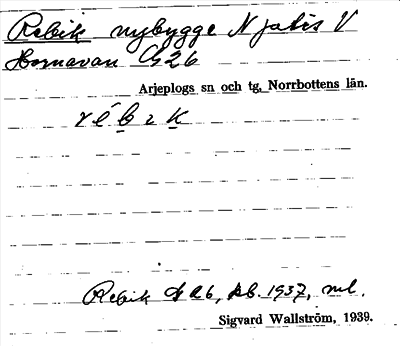 Rebik nybygge N Jutis V
Hornavan G26
Arjeplogs sn och tg, Norrbottens län.
Rebik G 26, kb. 1937, ml.
Sigvard Wallström, 1939.